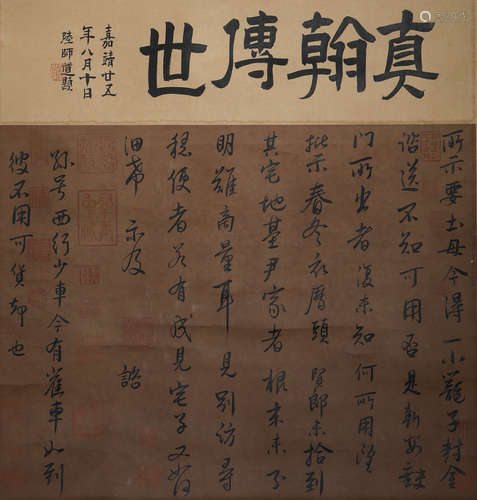 真翰傳世
嘉靖廿五
年八月十日
陸師道題
所示要土母今得一小籠子封全
諮送不知可用否是新安缺
門所出者復未知何所用望
批示春冬衣曆頭賢郎未撿到
其宅地基尹家者根本未分
明難商量耳見別訪尋
穩便者若有成見宅子又如
希示及諮
孫号西行少車今有舊車如到
彼不用可貨却也